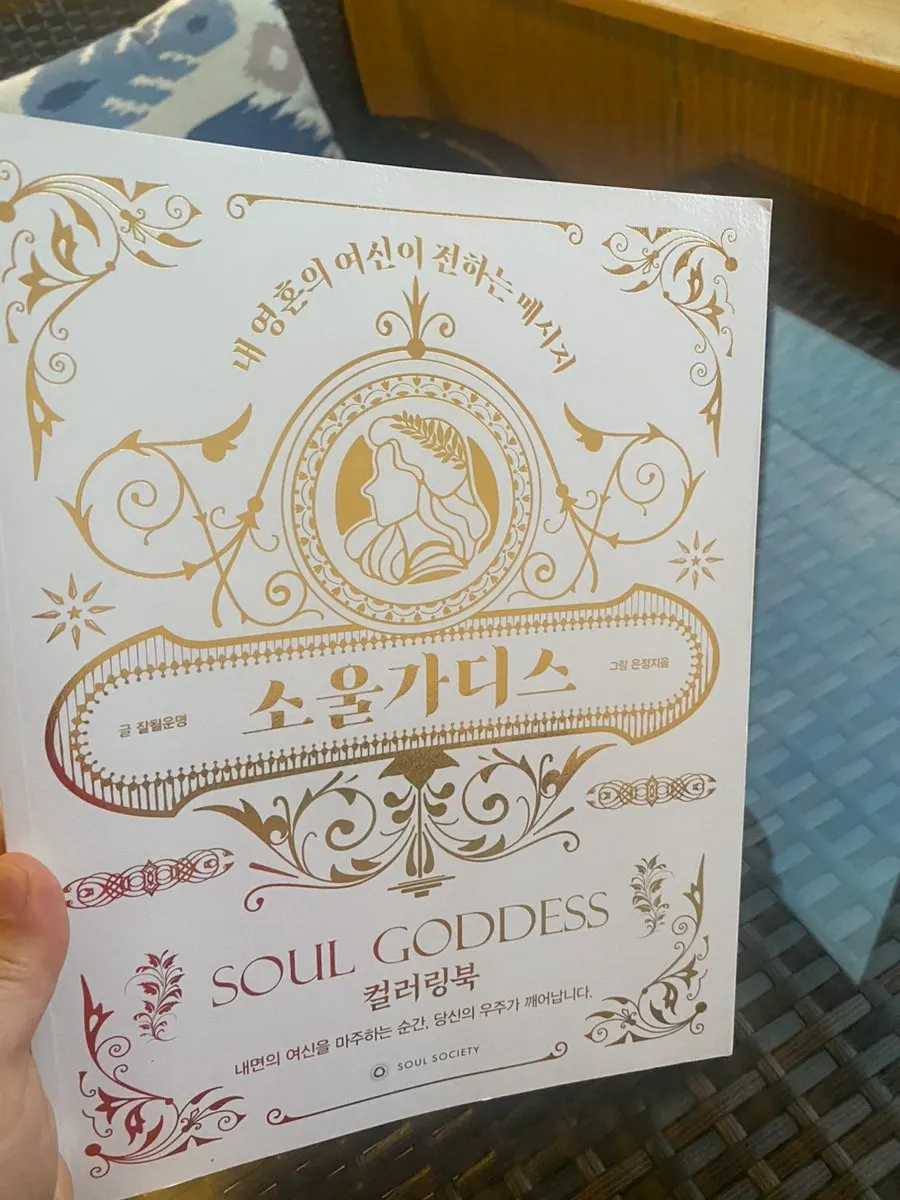 내 영혼의 여신이 전하는 메시지
소울가디스
글 잘될운명
그림 은정지음
SOUL GODDESS
컬러링북
내면의 여신을 마주하는 순간, 당신의 우주가 깨어납니다.
SOUL SOCIETY